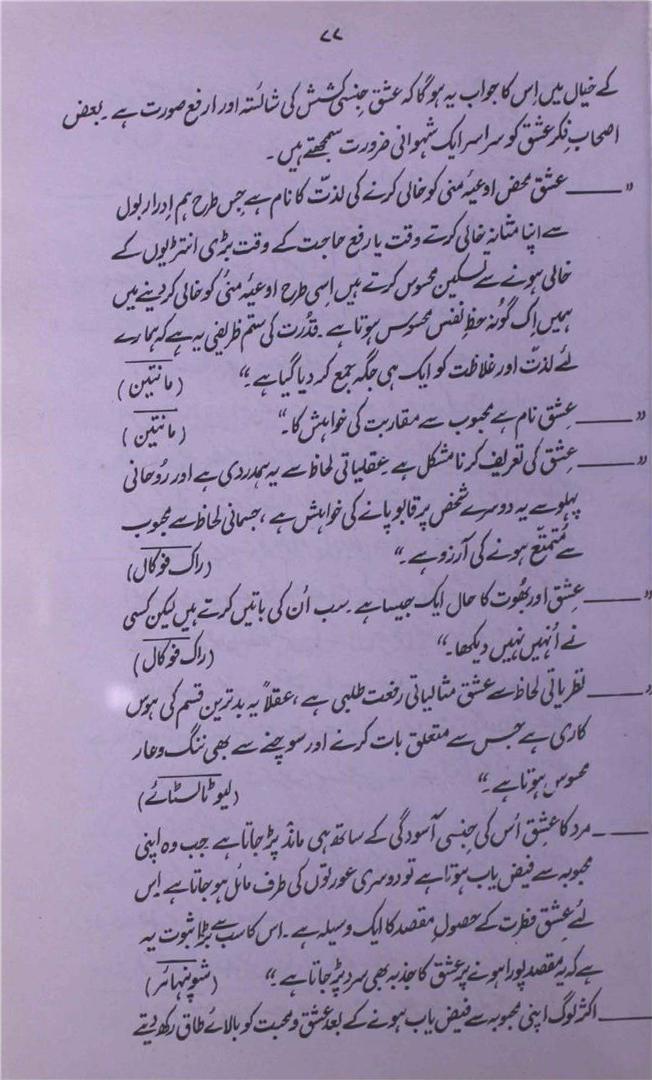 ۷۷
کے خیال میں اِس کا جواب یہ ہوگا کہ عشق جنسی کشش کی شائستہ اور ارفع صورت ہے ۔ بعض
اصحابِ فکر عشق کو سراسر ایک شہوانی ضرورت سمجھتے ہیں ۔
"ـــــ عشق محض اوعیۂ منی کو خالی کرنے کی لذّت کا نام ہے جس طرح ہم اِدرارِ بول
سے اپنا مثانہ خالی کرتے وقت یا رفع حاجت کے وقت بڑی انتڑیوں کے
خالی ہونے سے تسکین محسوس کرتے ہیں اِسی طرح اوعیۂ منی کو خالی کر دینے میں
ہمیں اِک گونہ حظِ نفس محسوس ہوتا ہے ۔ قدُرت کی ستم ظریفی یہ ہے کہ ہمارے
لئے لذّت اور غلاظت کو ایک ہی جگہ جمع کر دیا گیا ہے ۔" (مانتین)
"ـــــ عِشق نام ہے محبوب سے مقاربت کی خواہش کا ۔" (مانتین)
"ـــــ عِشق کی تعریف کرنا مشکل ہے ۔ عقلیاتی لحاظ سے یہ ہمدردی ہے اور رُوحانی
پہلو سے یہ دوسرے شخص پر قابو پانے کی خواہش ہے ، جسمانی لحاظ سے محبوب
سے مُتمتّع ہونے کی آرزو ہے ۔" (راک فوکال)
"ـــــ عِشق اور بھُوت کا حال ایک جیسا ہے ۔ سب اُن کی باتیں کرتے ہیں لیکن کسی
نے اُنہیں نہیں دیکھا ۔" (راک فوکال)
"ـــــ نظریاتی لحاظ سے عشق مثالیاتی رفعت طلبی ہے ، عقلاً یہ بدترین قسم کی ہوس
کاری ہے جس سے متعلق بات کرنے اور سوچنے سے بھی ننگ و عار
محسوس ہوتا ہے ۔" (لیو ٹالسٹائے)
ـــــ مرد کا عشِق اُس کی جنسی آسودگی کے ساتھ ہی ماند پڑ جاتا ہے جب وہ اپنی
محبوبہ سے فیض یاب ہوتا ہے تو دوسری عورتوں کی طرف مائل ہو جاتا ہے اِس
لئے عِشق فطرت کے حصولِ مقصد کا ایک وسیلہ ہے ۔ اس کا سب سے بڑا ثبوت یہ
ہے کہ یہ مقصد پورا ہونے پر عشق کا جذبہ بھی سرد پڑ جاتا ہے ۔" (شوپنہائر)
ـــــ اکثر لوگ اپنی محبوبہ سے فیض یاب ہونے کے بعد عشق و محبت کو بالائے طاق رکھ دیتے